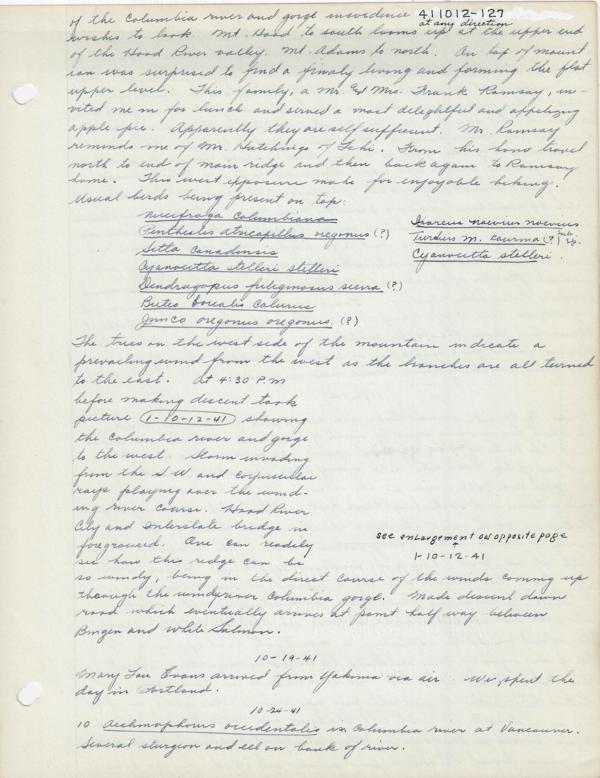 of the Columbia river and gorge in evidence 411012-127
at any direction
wishes to look. Mt. Hood to south looms up at the upper end
of the Hood River valley. Mt. Adams to north. On top of mount
ian was surprised to find a family living and farming the flat
upper level. This family, a Mr. & Mrs. Frank Ramsay, in-
vited me in for lunch and served a most delightful and appetizing
apple pie. Apparently they are self sufficient. Mr. Ramsay
reminds me of Mr. Hutchings of Lehi. From his home travel
north to end of main ridge and then back again to Ramsay
home. This west exposure make for enjoyable hiking.
Usual birds being present on top:
Nucifraga columbiana
Penthestes atricapillus oregonus (?)
Sitta canadensis
Cyanocitta stelleri stelleri
Dendragapus fuliginosus sierra (?)
Buteo borealis calurus
Junco oreganus oreganus (?)
Ixoreus naevius naevius
Turdus m. caurina (?)
Cyanocitta stelleri.
The trees on the west side of the mountain indicate a
prevailing wind from the west as the branches are all turned
to the east. At 4:30 P.M
before making descent took
picture 1-10-12-41 showing
the Columbia river and gorge
to the west. Storm invading
from the S.W. and corpuscular
rays playing over the wind-
ing river course. Hood River
City and Interstate bridge in
foreground. One can readily
see how this ridge can be
see enlargement on opposite page
1-10-12-41
so windy, being in the direct course of the winds coming up
through the windy river Columbia gorge. Made descent down
road which eventually arrives at point half way between
Bingen and White Salmon.
10-19-41
Mary Lou Evans arrived from Yakima via air. We spent the
day in Portland.
10-24-41
10 Aechmophorus occidentalis in Columbia river at Vancouver.
Several sturgeon and eel on bank of river.